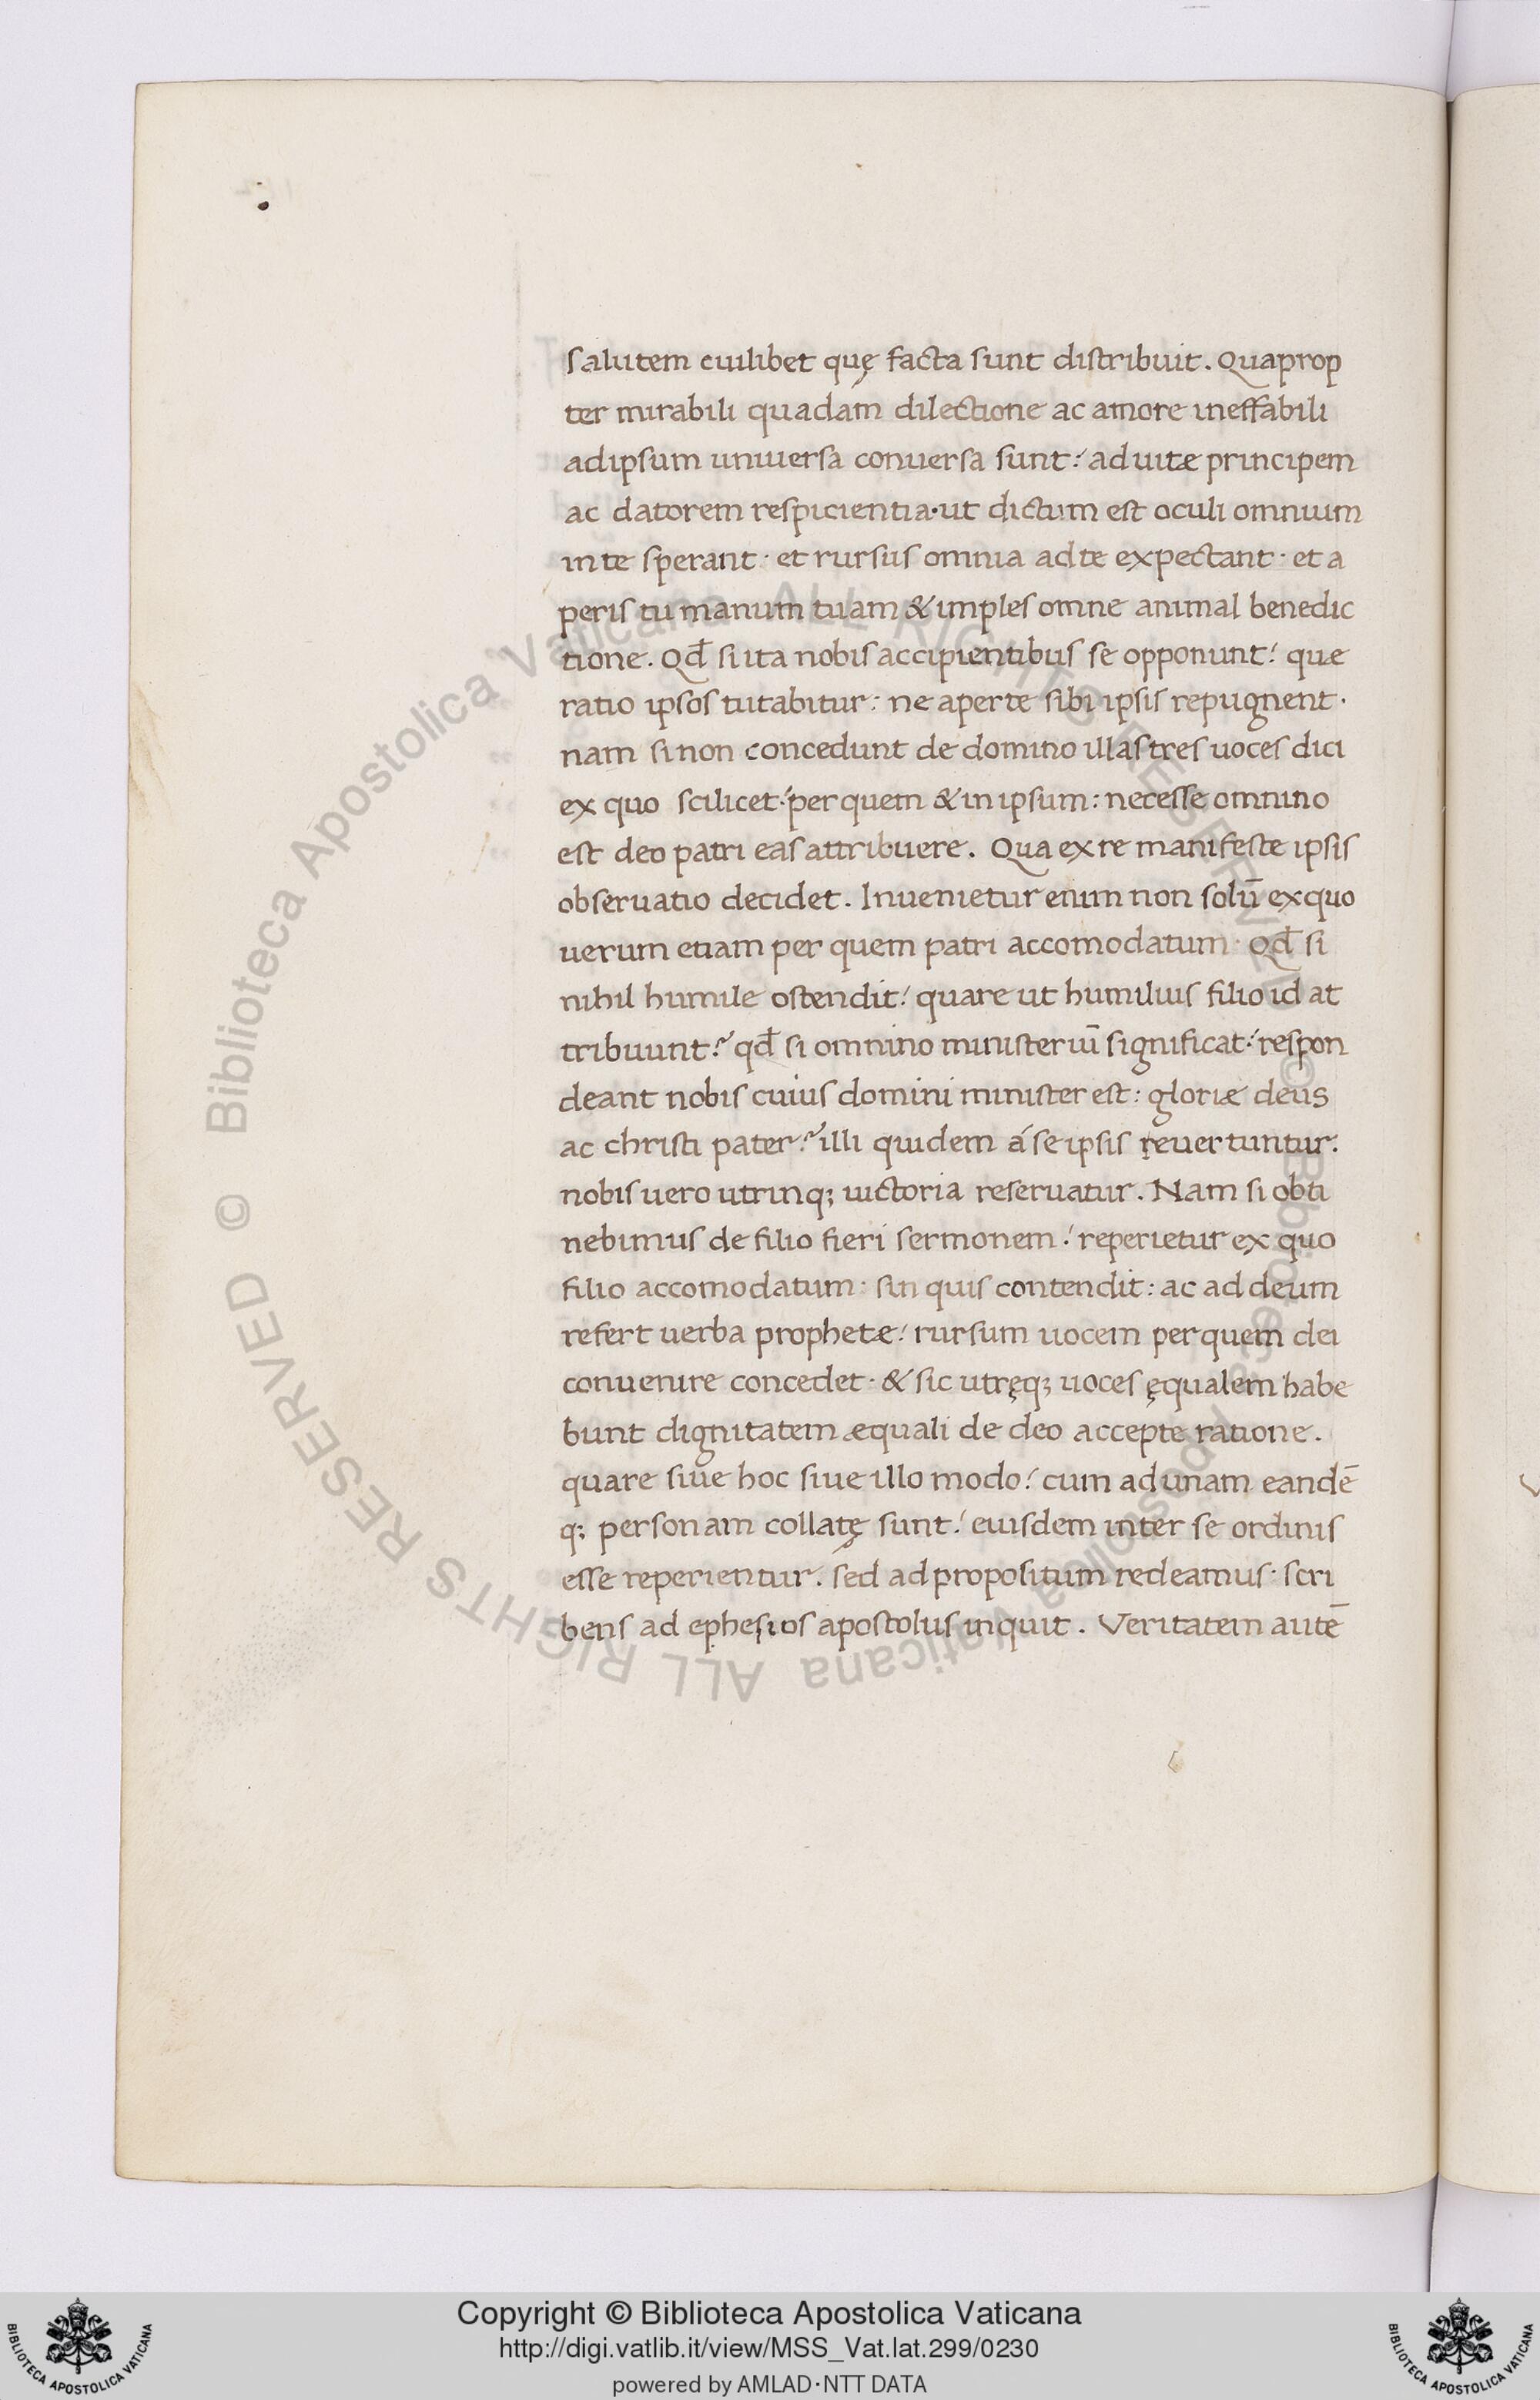 salutem cuilibet quę facta sunt distribuit. Quaprop
ter mirabili quadam dilectione ac amore ineffabili
adipsum uniuersa conuersa sunt: ad uitæ principem
ac datorem respicientia·ut dictum est oculi omnium
in te sperant· et rursus omnia ad te expectant· et a
peris tu manum tuam & imples omne animal benedic
tione. Qđ si ita nobis accipientibus se opponunt: quæ
ratio ipsos tutabitur: ne aperte sibi ipsis repugnent·
nam si non concedunt de domino illas tres uoces dici
ex quo scilicet: per quem & in ipsum: necesse omnino
est deo patri eas attribuere. Qua ex re manifeste ipsis
obseruatio decidet. Inuenietur enim non solū ex quo
uerum etiam per quem patri accomodatum· Qđ si
nihil humile ostendit: quare ut humilius filio id at
tribuunt? qđ si omnino ministeriū significat: respon
deant nobis cuius domini minister est: gloriæ deus
ac christi pater? illi quidem á se ipsis reuertuntur:
nobis uero utrinq; uictoria reseruatur. Nam si obti
nebimus de filio fieri sermonem: reperietur ex quo
filio accomodatum· sin quis contendit: ac ad deum
refert uerba prophetæ: rursum uocem per quem dei
conuenire concedet· & sic utręq; uoces ęqualem habe
bunt dignitatem æquali de deo accepte ratione.
quare siue hoc siue illo modo: cum ad unam eandē
q; personam collatę sunt: euisdem inter se ordinis
esse reperientur. sed ad propositum redeamus· scri
bens ad ephesios apostolus inquit. Veritatem autē
© Biblioteca Apostolica Vaticana ALL RIGHTS RESERVED © Biblioteca Apostolica Vaticana ALL RIGHTS RESERVED
BIBLIOTECA APOSTOLICA VATICANA
Copyright © Biblioteca Apostolica Vaticana
http://digi.vatlib.it/view/MSS_Vat.lat.299/0230
powered by AMLAD·NTT DATA
BIBLIOTECA APOSTOLICA VATICANA